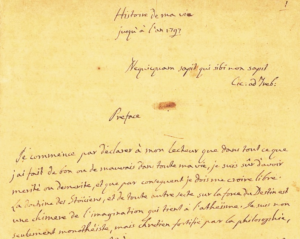 1
Histoire de ma vie
jusqu'à l'an 1797
Nequicquam sapit qui sibi non sapit
Cic. ad Treb.
Preface
Je commence par déclarer à mon lecteur que dans tout ce que
j'ai fait de bon ou de mauvais dans toute ma vie, je suis sûr d'avoir
merité ou demerité, et que par consequent je dois me croire libre.
La doctrine des Stoïciens, et de toute autre secte sur la force du Destin est
une chimere de l'imagination qui tient à l'atheïsme. Je suis non
seulement monothéiste, mais chretien fortifié par la philosophie,